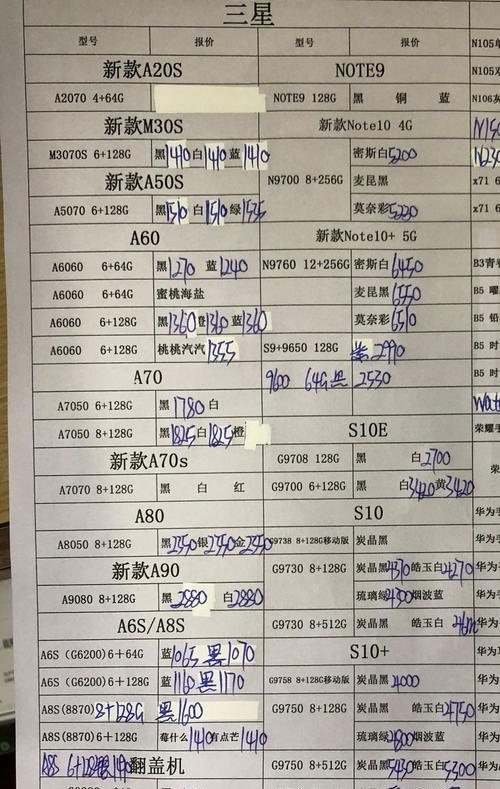 三星
型号 报价 型号 报价 N105单
新款A20S NOTE9 N105双
A2070 4+64G NOTE9 128G 黑 铜 蓝 N106灰
新款M30S 新款Note10 4G
M3070S 6+128G 黑1410 白1410 蓝1410 密斯白5200
新款A50S N9700 8+256G 麦昆黑 x71 6
A5070 6+128G 黑1510 白1510 绿1535 莫奈彩5220 x71 6
A60 新款Note10+ 5G
A6060 6+64G 黑1270 蓝1240 N9760 12+256G 密斯白6450 B3青春
A6060 6+64G 蜜桃海盐 麦昆黑6550 B5 曜
A6060 6+128G 黑1360 橙1360 蓝1360 莫奈彩6510 B5 铅
A6060 6+128G 桃桃汽汽1355 S9+9650 128G 黑2990 B5 时
A70 9600 64G黑 2530 B5 时
A7050 6+128G 黑1780 白
A7050 8+128G 黑1825 白1825 橙 S10E 荣耀手
新款A70s G9708 128G 黑 白2700
A7070 8+128G 黑 白 红 G9700 6+128G 黑 白3420 黄3420
A80 S10 华为手
A8050 8+128G 黑2350 银2350 金2350 G9738 8+128G移动版 炭晶黑 华为
新款A90 G9730 8+128G 炭晶黑4370 皓玉白4270 华为手
A9080 8+128G 黑2880 白2880 琉璃绿4300 烟波蓝 华为
A6S/A8S G9730 8+512G 炭晶黑 皓玉白 华为手
A6S (G6200)6+64G 蓝1065 黑1070 S10+
A6S (G6200)6+128G 蓝1160 黑1170 G9758 8+128G移动版 炭晶黑4000 华为
A8S(8870) 8+128G 黑1600 G9750 8+128G 炭晶黑 皓玉白4750 华为
A8S(8870) 6+128G 莓什么1410 有点芒1410 琉璃绿4800 烟波蓝 华为
A8S 6+128G 翻盖机 G9750 8+512G 炭晶黑5430 皓玉白5300 华为